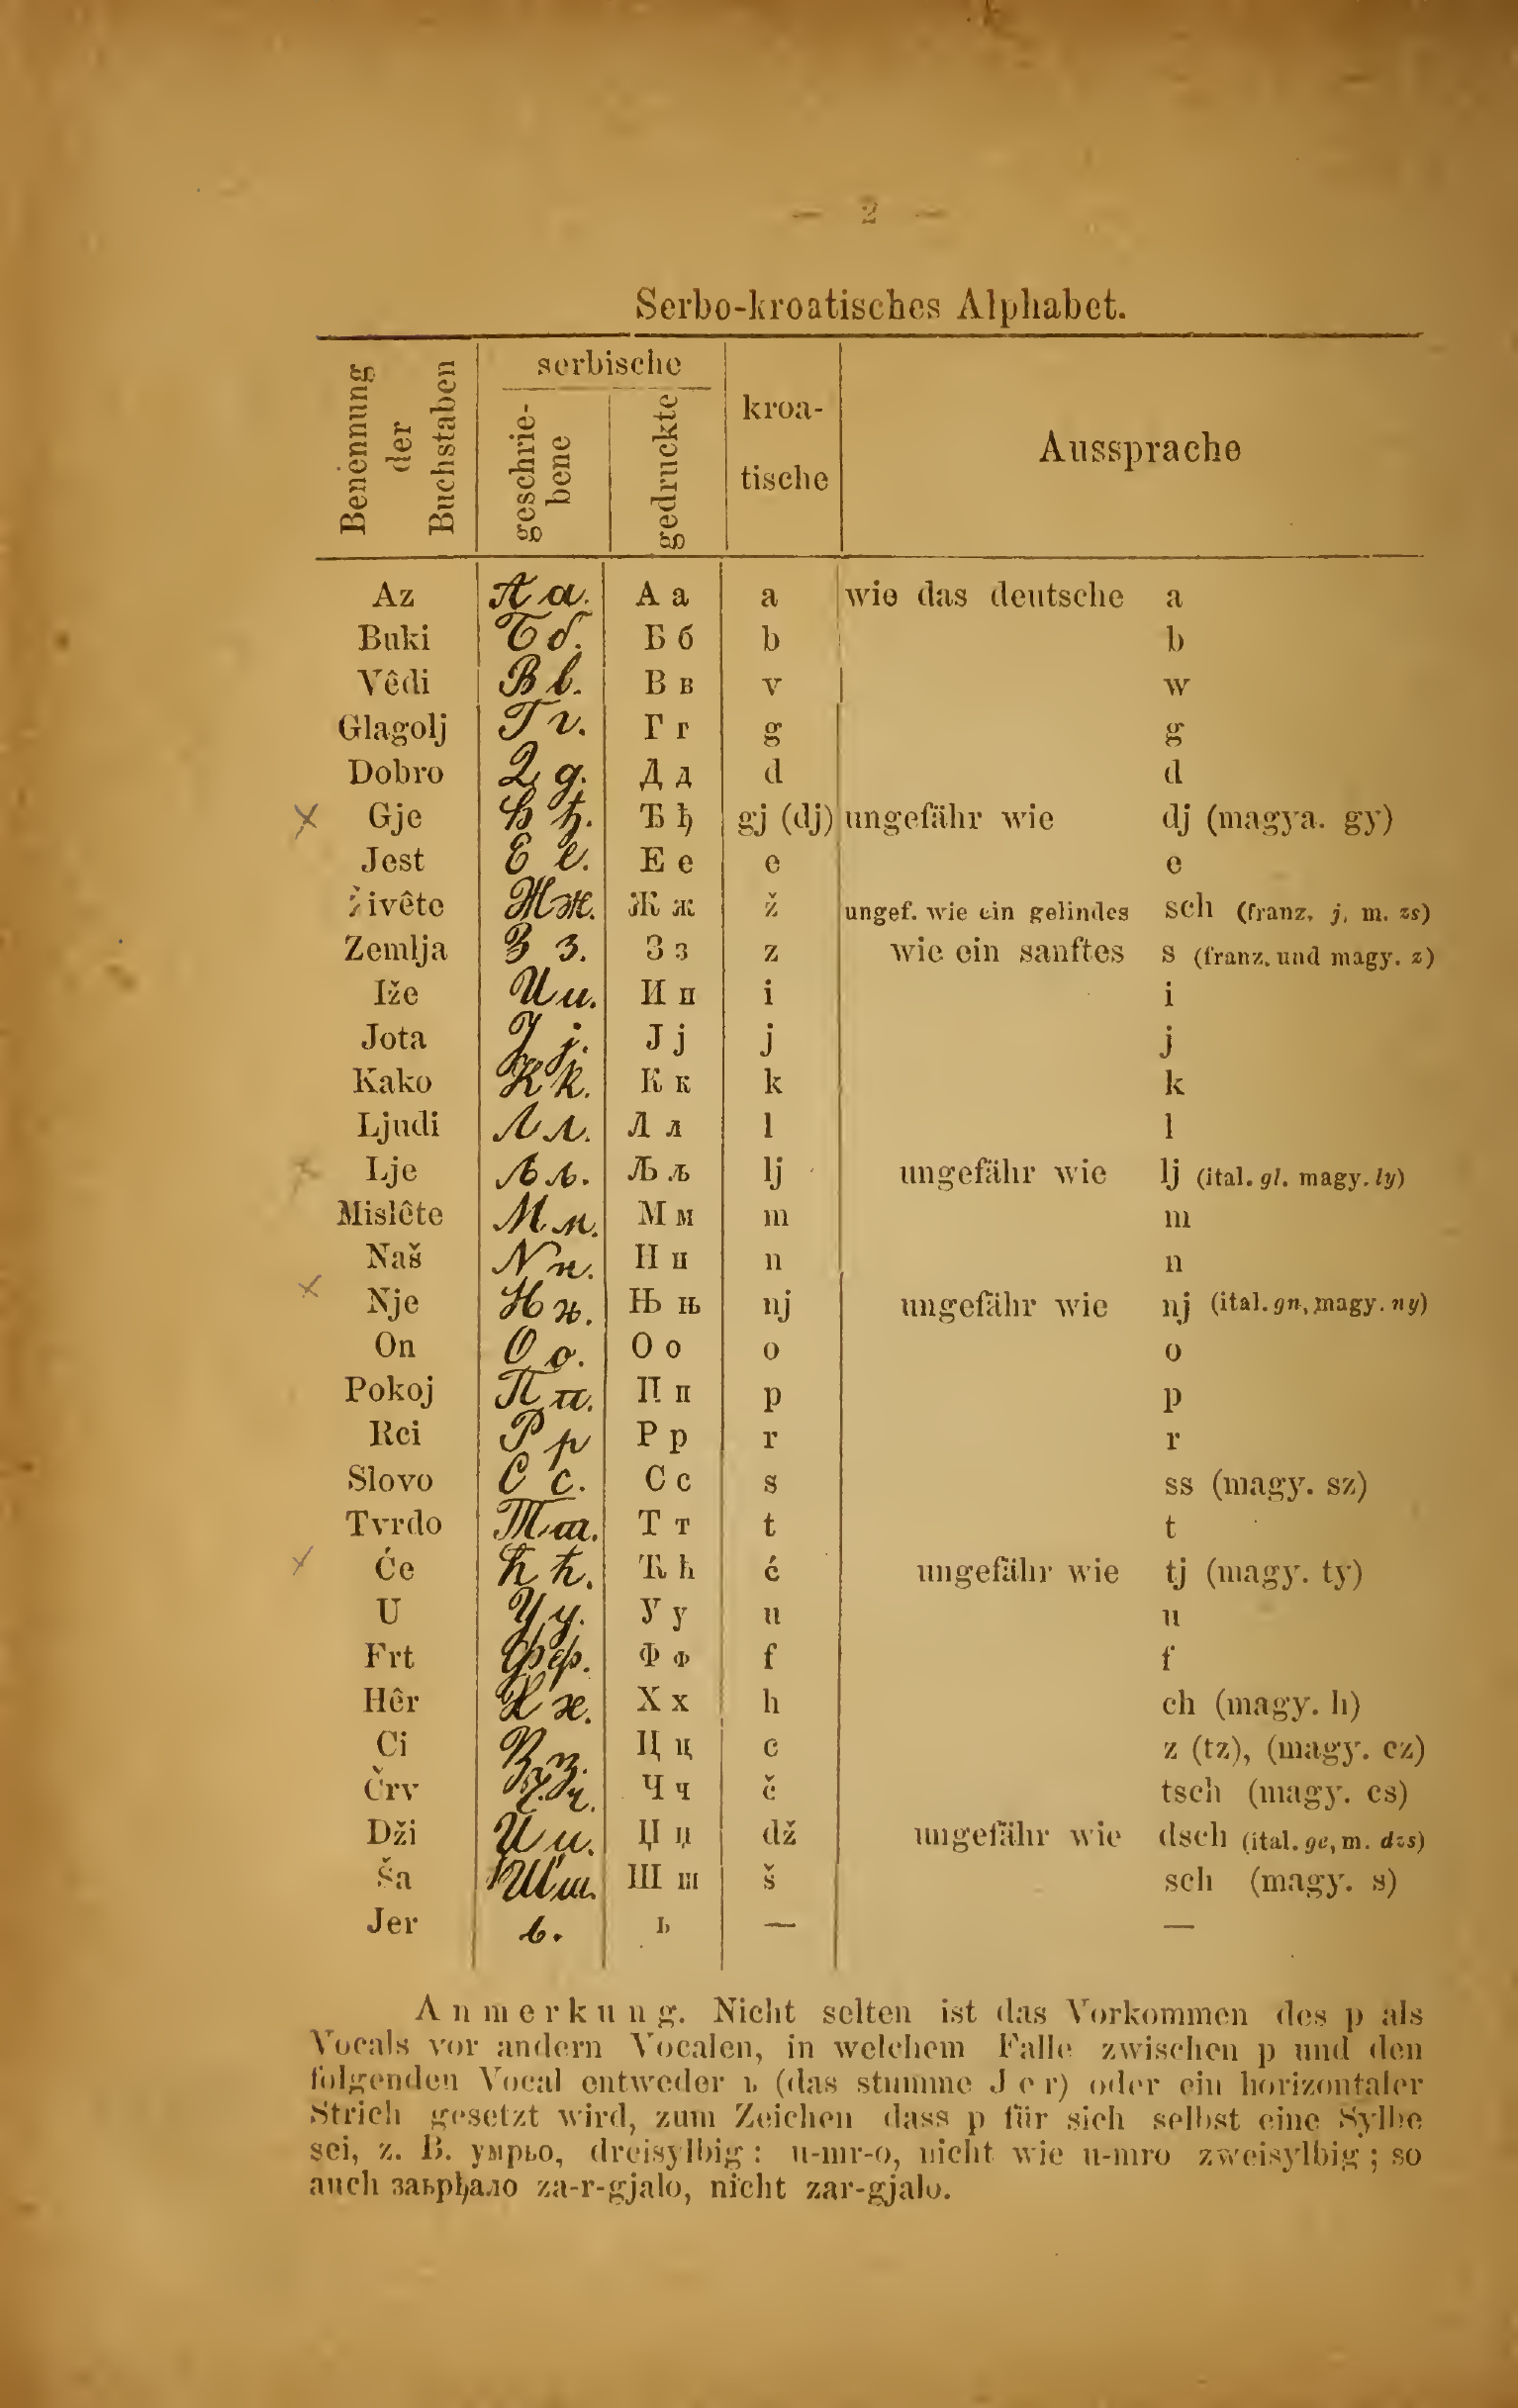 — 2 —
Serbo-kroatisches Alphabet.
Benennung der Buchstaben | serbische geschrie-bene | serbische gedruckte | kroa-tische | Aussprache
Az Аа. А а a wie das deutsche a
Buki Бб. Б б b b
Vêdi Вв. В в v w
Glagolj Гг. Г г g g
Dobro Дд. Д д d d
Gje Ђђ. Ђ ђ gj (dj) ungefähr wie dj (magya. gy)
Jest Ее. Е е e e
Živête Жж. Ж ж ž ungef. wie ein gelindes sch (franz. j, m. zs)
Zemlja Зз. З з z wie ein sanftes s (franz. und magy. z)
Iže Ии. И и i i
Jota Јј. Ј ј j j
Kako Кк. К к k k
Ljudi Лл. Л л l l
Lje Љљ. Љ љ lj ungefähr wie lj (ital. gl. magy. ly)
Mislête Мм. М м m m
Naš Нн. Н н n n
Nje Њњ. Њ њ nj ungefähr wie nj (ital. gn, magy. ny)
On Оо. О о o o
Pokoj Пп. П п p p
Rci Рр Р р r r
Slovo Сс. С с s ss (magy. sz)
Tvrdo Тт. Т т t t
Će Ћћ. Ћ ћ ć ungefähr wie tj (magy. ty)
U Уу. У у u u
Frt Фф. Ф ф f f
Hêr Хх. Х х h ch (magy. h)
Ci Цц. Ц ц c z (tz), (magy. cz)
Črv Чч. Ч ч č tsch (magy. cs)
Dži Џџ. Џ џ dž ungefähr wie dsch (ital. ge, m. dzs)
Ša Шш. Ш ш š sch (magy. s)
Jer ь. ь — —
Anmerkung. Nicht selten ist das Vorkommen des р als
Vocals vor andern Vocalen, in welchem Falle zwischen р und den
folgenden Vocal entweder ь (das stumme Jer) oder ein horizontaler
Strich gesetzt wird, zum Zeichen dass р für sich selbst eine Sylbe
sei, z. B. умрьо, dreisylbig : u-mr-o, nicht wie u-mro zweisylbig ; so
auch заьрђало za-r-gjalo, nicht zar-gjalo.